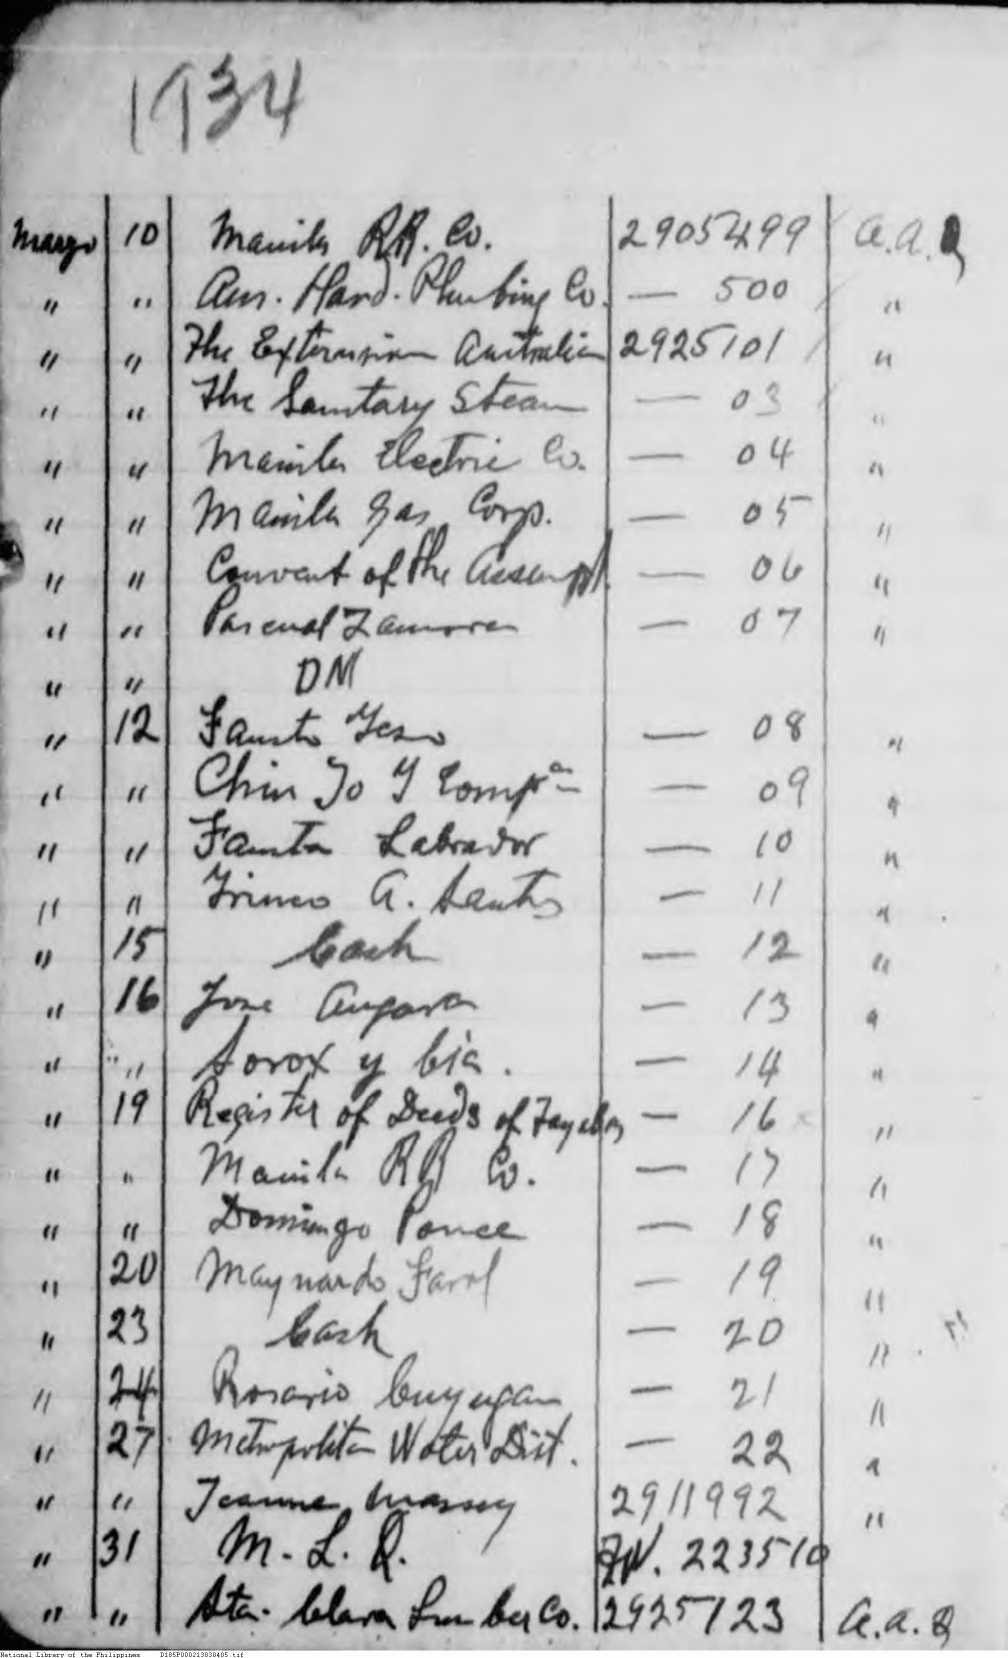 1934
Marzo 10 Manila RR. Co. 2905499 a.a.Q
" " Am. Hard. Plumbing Co. — 500 "
" " The Extension Australian 2925101 "
" " The Sanitary Steam — 03 "
" " Manila Electric Co. — 04 "
" " Manila Gas Corp. — 05 "
" " Convent of the Assumpt. — 06 "
" " Pascual Zamora — 07 "
" " DM
" 12 Fausto — 08 "
" " Chin To Y Compª — 09 "
" " Fausta Labrador — 10 "
" " A. Santos — 11 "
" 15 Cash — 12 "
" 16 Jose Angara — 13 "
" " Sorox y Cia. — 14 "
" 19 Register of Deeds of Tayabas — 16 "
" " Manila RR Co. — 17 "
" " Domingo Ponce — 18 "
" 20 Maynardo Farol — 19 "
" 23 Cash — 20 "
" 24 Rosario Cuyugan — 21 "
" 27 Metropolitan Water Dist. — 22 "
" " Jeanne Massey 2911992 "
" 31 M. L. Q. 223510
" " Sta. Clara Lumber Co. 2925123 a.a.Q
National Library of the Philippines D185P000213838405.tif